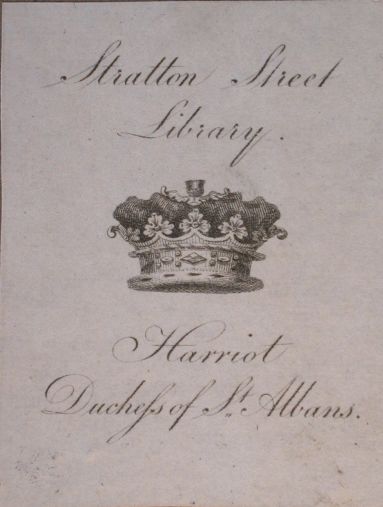 Stratton Street
Library.
Harriot
Ducheſs of St. Albans.